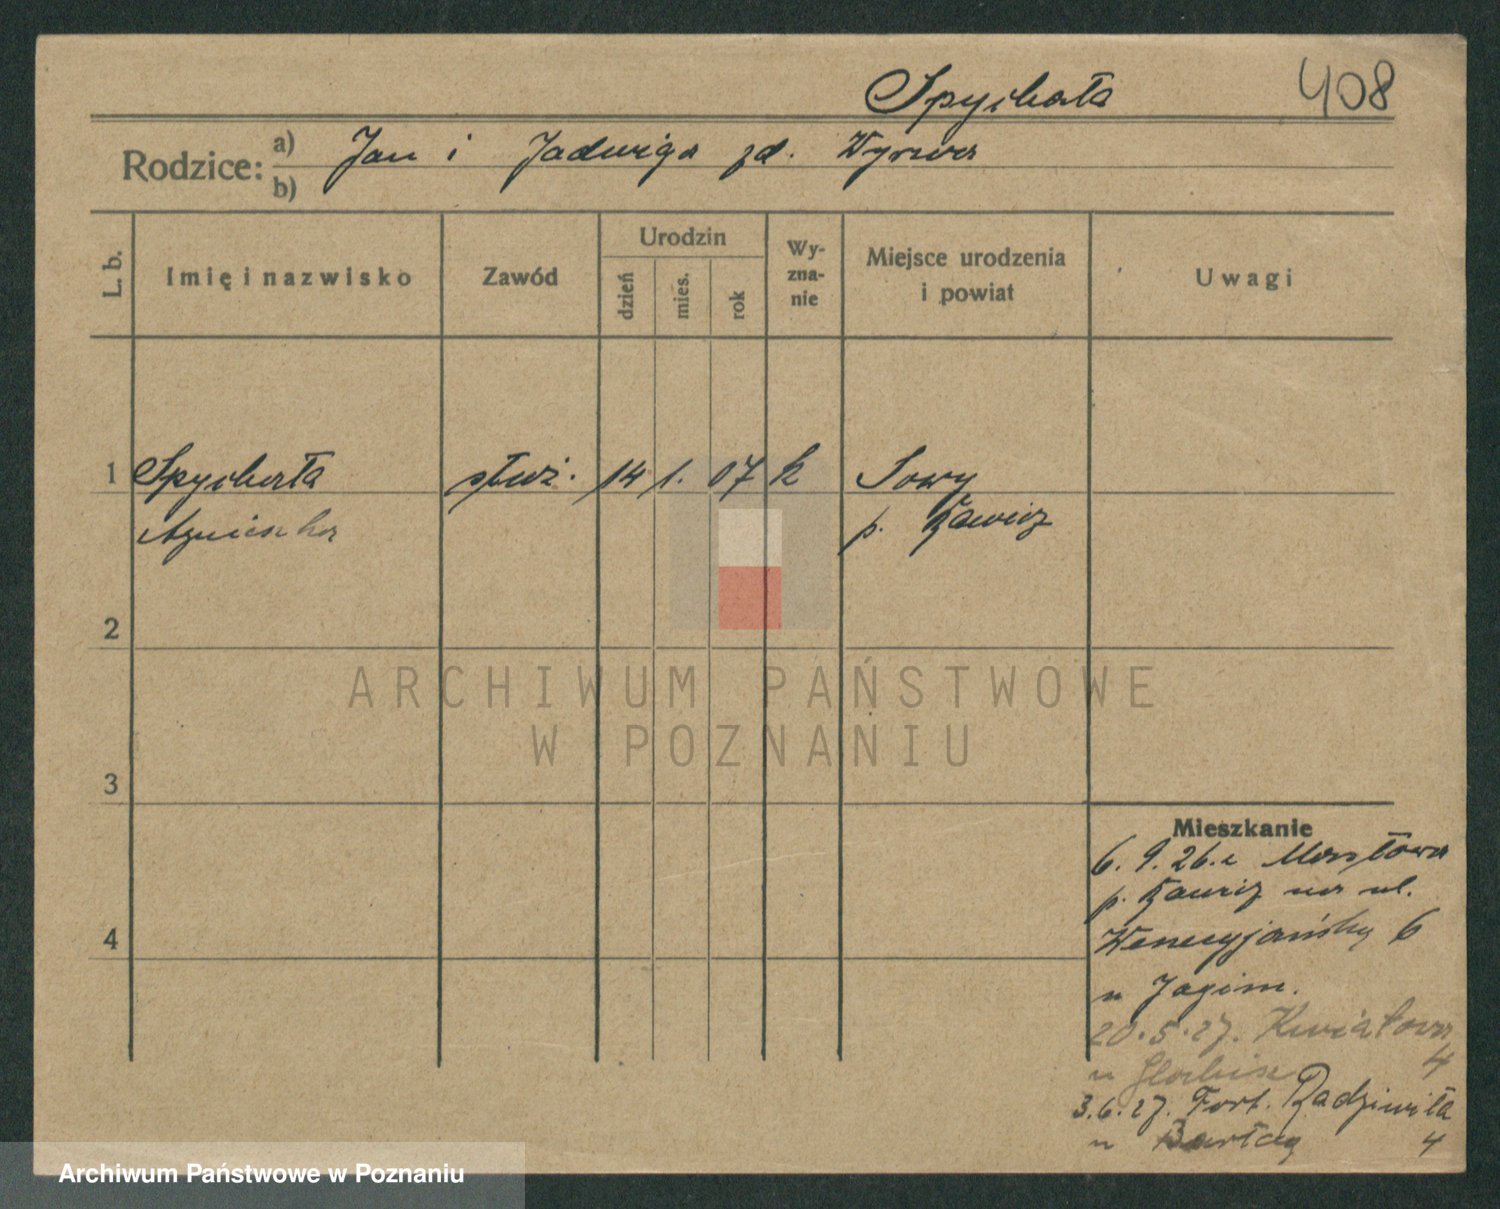 Spychała 408
Rodzice: a) Jan i Jadwiga zd. Wyrwa
b)
L. b.
Imię i nazwisko
Zawód
Urodzin
dzień
mies.
rok
Wy-
zna-
nie
Miejsce urodzenia
i powiat
Uwagi
1 Spychała służ. 14 1. 07 k Sowy
Agnieszka p. Rawicz
2
3
4
ARCHIWUM PAŃSTWOWE
W POZNANIU
Mieszkanie
6. 9. 26. z
p. Rawicz na ul.
Wenecjańską 6
u
20.5.27. Kwiatowa
4
u
3.6.27. Fort. Radziwiłła
u 4
Archiwum Państwowe w Poznaniu